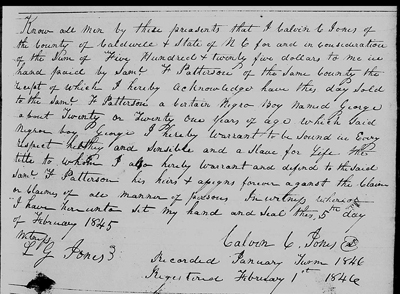 Know all men by these presents that I Calvin C Jones of
the County of Caldwell & State of N C for and in consideration
of the Sum of Five Hundred & twenty five dollars to me in
hand pauid by Saml F Patterson of the Same County the
recept of which I hereby Acknowledge have this day Sold
to the Saml F Patterson a Certain Nigro Boy Named George
about Twenty or Twenty One years of age which Said
Nigrow boy George I hereby Warrant to be Sound in Every
respect helthy and Sinsible and a Slave for Life the
title to whom I also hereby Warrant and defend to the Said
Saml F Patterson his heirs & assigns forever against the Claim
or Claimes of all manner of persons In witness whereof
I have hereunto Sit my hand and Seal this 5th day
of February 1845
Calvin C. Jones
L G Jones
Recorded January Turm 1846
Registered February 1st 1846